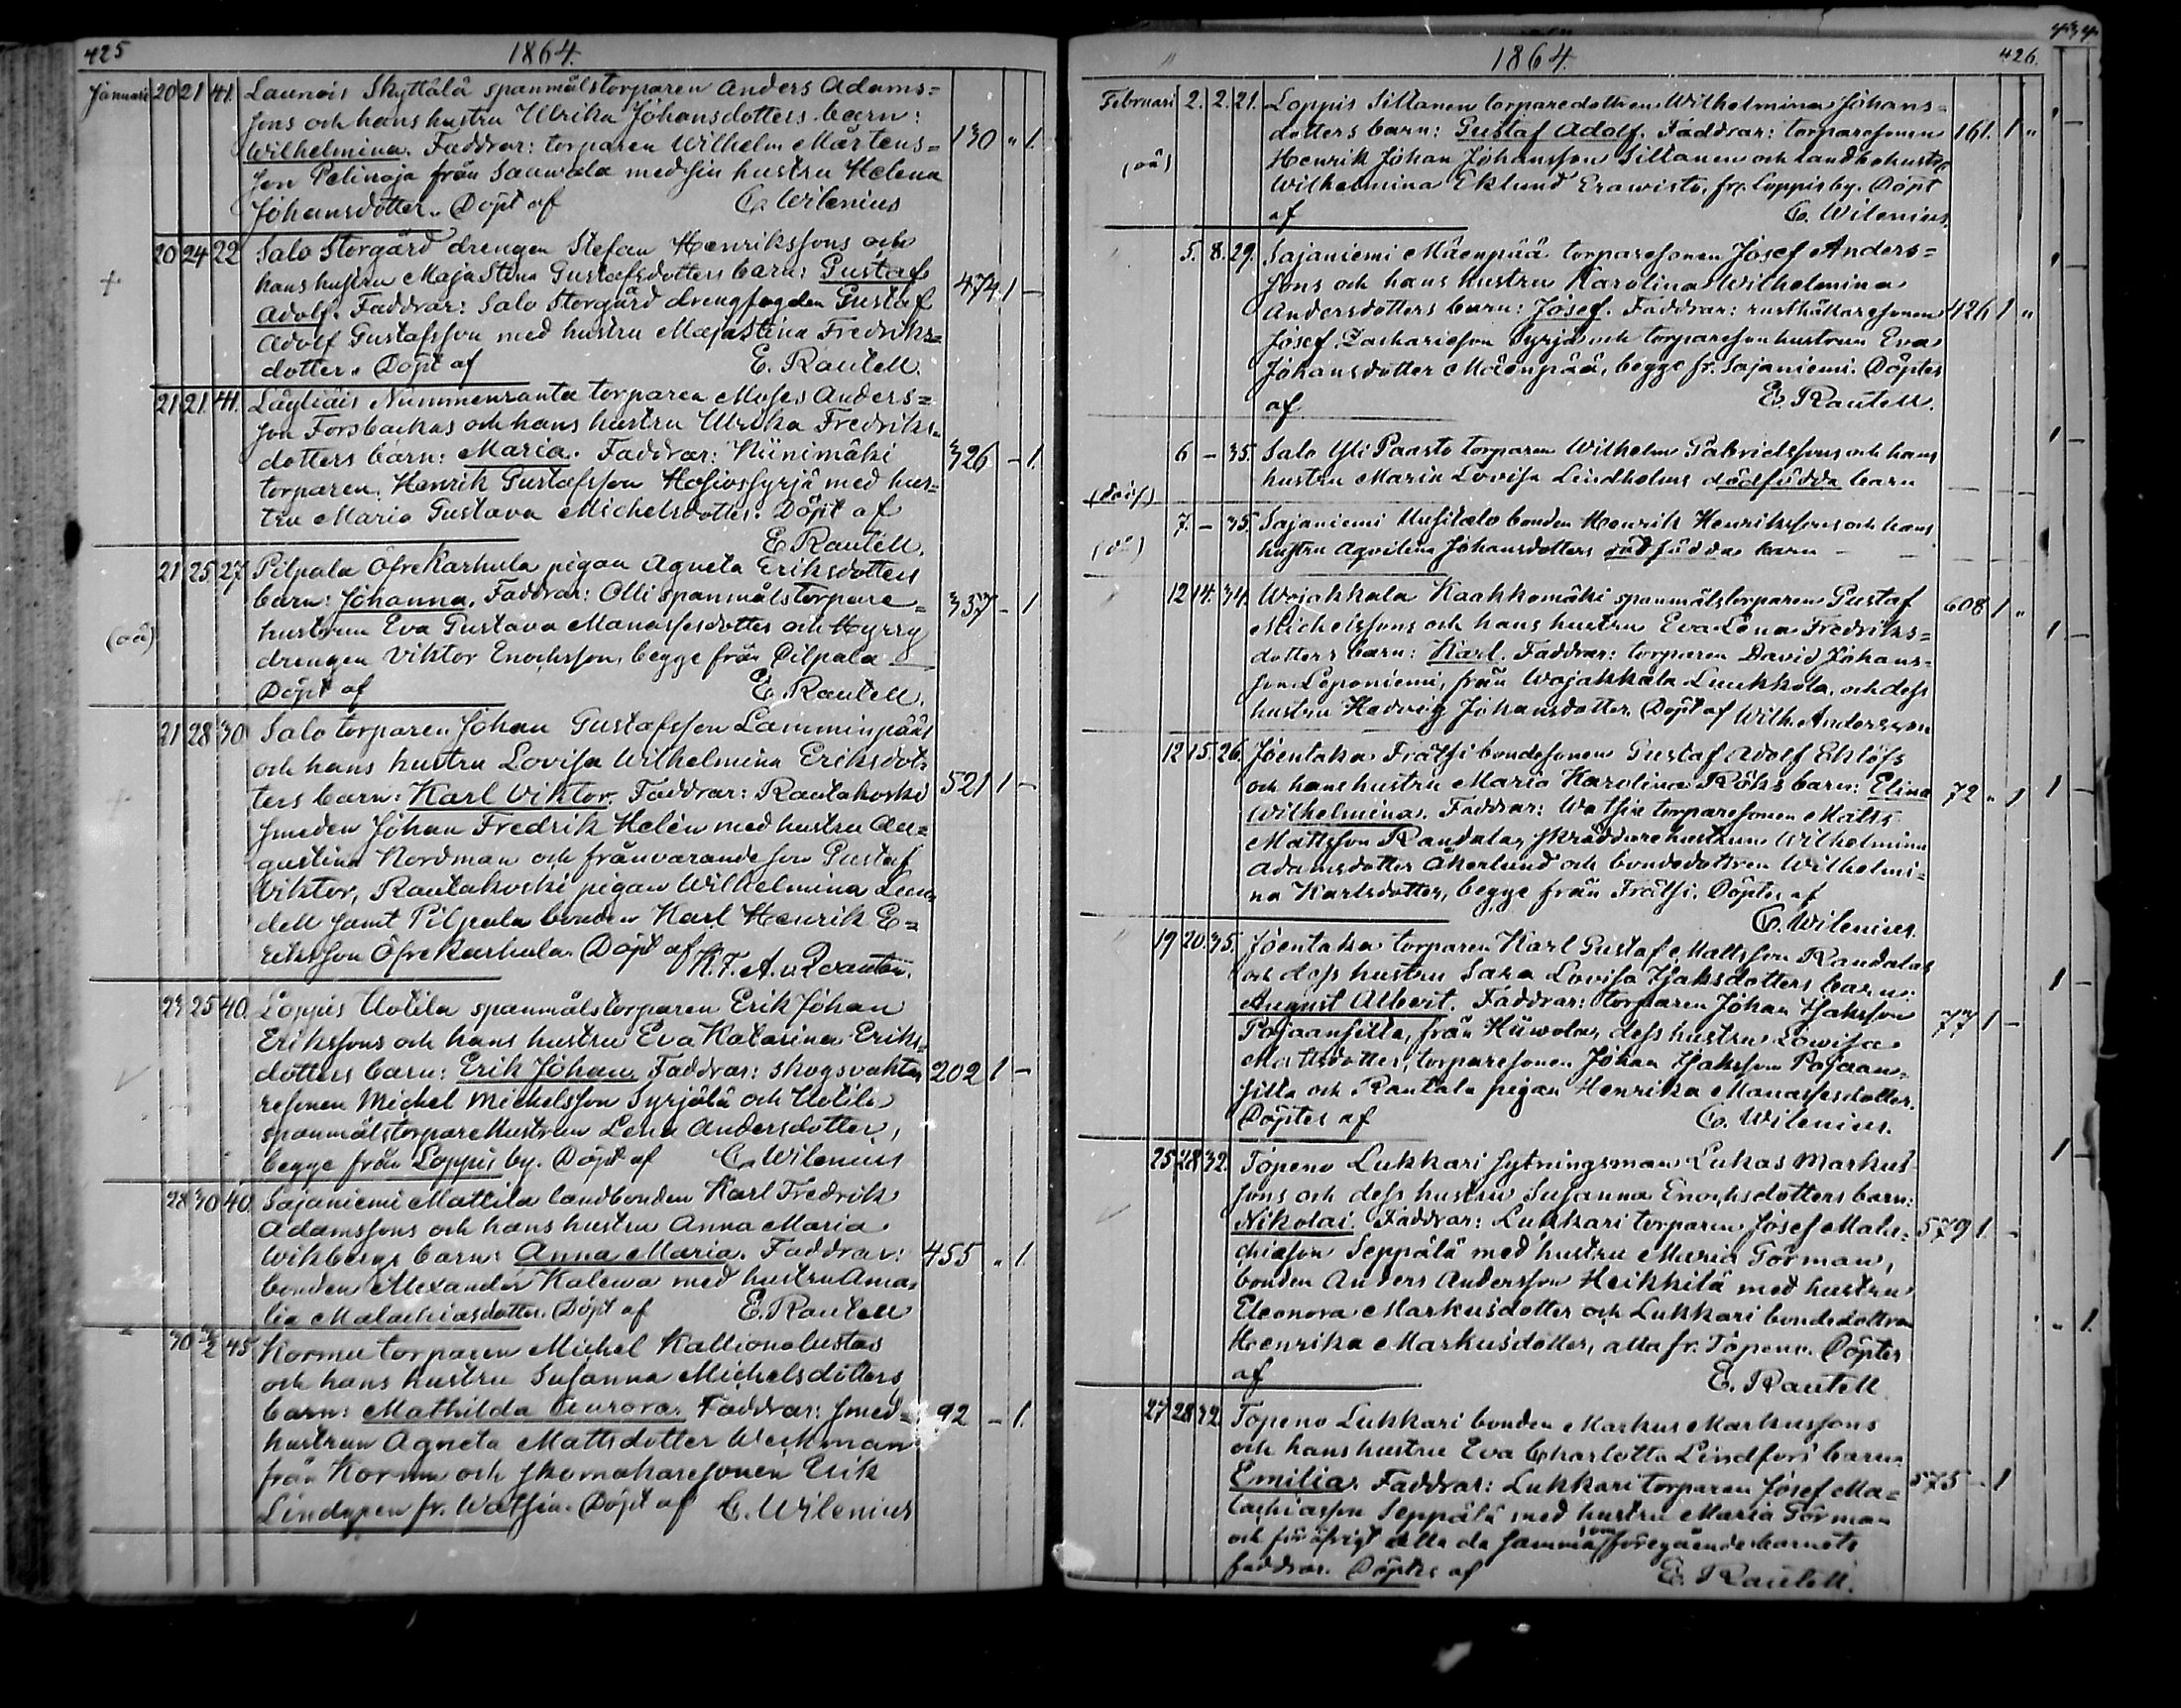 425
1864.
Januari 20 21 41. Launois Skyttälä spanmålstorparen Anders Adams=
sons och hans hustru Ulrika Johansdotters barn:
Wilhelmina. Faddrar: torparen Wilhelm Mårtens= 130 " 1.
son Pelinoja från Sauwala med sin hustru Helena
Johansdotter. Döpt af C. Wilenius
20 24 22 Salo Storgård drengen Stefan Henrikssons och
hans hustru Maja Stina Gustafsdotters barn: Gustaf
+ 474 1 –
Adolf. Faddrar: Salo Storgård drengfogden Gustaf
Adolf Gustafsson med hustru Maja Stina Fredriks=
dotter. Döpt af E. Rautell.
21 21. 41. Läyliäis Nummenranta torparen Moses Anders=
son Forsbackas och hans hustru Ulrika Fredriks=
dotters barn: Maria. Faddrar: Niinimäki 326 – 1.
torparen Henrik Gustafsson Hosiossyrjä med hus=
tru Maria Gustava Michelsdotter. Döpt af
E Rautell.
21 25 27 Pilpala Öfre Karhula pigan Agneta Eriksdotters
barn: Johanna. Faddrar: Olli spanmåls torpare= 337 – 1
(oä) hustrun Eva Gustava Manassesdotter och Hyrry
drengen Viktor Enochsson begge från Pilpala
Döpt af E. Rautell.
21 28 30 Salo torparen Johan Gustafsson Lamminpääs
och hans hustru Lovisa Wilhelmina Eriksdot=
ters barn: Karl Viktor. Faddrar: Rautakoski 521 1 –
smeden Johan Fredrik Helén med hustru Au=
gustina Nordman och frånvarande son Gustaf
Viktor, Rautakoski pigan Wilhelmina Lun=
dell samt Pilpala bonden Karl Henrik E=
riksson Öfre Karhula. Döpt af K. F. A.
25 40. Loppis Uotila spanmålstorparen Erik Johan
Erikssons och hans hustru Eva Katarina Eriks=
dotters barn: Erik Johan. Faddrar: skogsvakta 202 1 –
resonen Michel Michelsson Syrjälä och Uotila
spanmålstorparehustrun Lena Andersdotter,
begge från Loppis by. Döpt af C. Wilenius
28 30 40. Sajaniemi Mattila landbonden Karl Fredrik
Adamssons och hans hustru Anna Maria
Wikbergs barn: Anna Maria. Faddrar: 455 " 1.
bonden Alexander Kalewa med hustru Ama=
lia Malachiasdotter. Döpt af E. Rautell
30 3/2 45 Kormu torparen Michel Kallionalustas
och hans hustru Susanna Michelsdotters
barn: Mathilda Aurora. Faddrar: smed= 92 – 1.
hustrun Agneta Mattsdotter Weckman
från Kormu och skomakaresonen Erik
Lindgren fr. Watsia. Döpt af C. Wilenius
1864.
426.
Februari 2. 2. 21. Loppis Sillanen torparedottren Wilhelmina Johans=
dotters barn: Gustaf Adolf. Faddrar: torparesonen 161. 1 "
(oä) Henrik Johan Johansson Sillanen och landbohustr
Wilhelmina Eklund Erawisto, fr. Loppis by. Döpt
af C. Wilenius.
5. 8. 29. Sajaniemi Mäenpää torparesonen Josef Anders=
sons och hans hustru Karolina Wilhelmina
Andersdotters barn: Josef. Faddrar: rusthållaresonen 426 1 "
Josef Zachariesson Syrjä och torparesonhustrun Eva
Johansdotter Mäenpää, begge fr. Sajaniemi. Döptes
af E. Rautell.
6 – 35. Salo Yli Paasto torparen Wilhelm Gabrielssons och hans
hustru Maria Lovisa Lindholms dödfödda barn
7. – 35. Sajaniemi Uusitalo bonden Henrik Henrikssons och hans
hustru Aqvilina Johansdotters dödfödda barn – –
12 14. 34. Wojakkala Kaakkomäki spanmålstorparen Gustaf 608 1 "
Michelssons och hans hustru Eva Lena Fredriks=
dotters barn: Karl. Faddrar: torparen David Johans=
son Leponiemi, från Wojakkala Luukkola, och dess
hustru Hedvig Johansdotter. Döpt af Wilh. Andersson
12 15. 26. Joentaka Frälsi bondesonen Gustaf Adolf Eklöfs
och hans hustru Maria Karolina Röks barn: Elina 72 " 1
Wilhelmina. Faddrar: Watsia torparesonen Matts
Mattsson Randala, skräddarehustrun Wilhelmina
Adamsdotter Åkerlund och bondedottren Wilhelmi=
na Karlsdotter, begge från Frälsi. Döptes af
C. Wilenius.
19 20. 35. Joentaka torparen Karl Gustaf Mattsson Randalas
och dess hustru Sara Lovisa Isaksdotters barn:
August Albert. Faddrar: torparen Johan Isaksson 77 1 –
Pajaansilta, från Hiiwola, dess hustru Lowisa
Mattsdotter, torparesonen Johan Isaksson Pajaan=
silta och Rautala pigan Henrika Manassesdotter.
Döptes af C. Wilenius.
25 28 32. Topeno Lukkari sytningsman Lukas Markus
sons och dess hustru Susanna Enochsdotters barn:
Nikolai. Faddrar: Lukkari torparen Josef Mala= 579 1. –
chiason Seppälä med hustru Maria Törman,
bonden Anders Andersson Heikkilä med hustru
Eleonora Markusdotter och Lukkari bondedottren
Henrika Markusdotter, alla fr. Topeno. Döptes
af E. Rautell
27 28 32. Topeno Lukkari bonden Markus Markussons
och hans hustru Eva Charlotta Lindfors' barn:
Emilia. Faddrar: Lukkari torparen Josef Ma= 575 – 1
lachiasson Seppälä med hustru Maria Törman
och för öfrigt alla de samma som föregående barnets
faddrar. Döptes af E. Rautell.